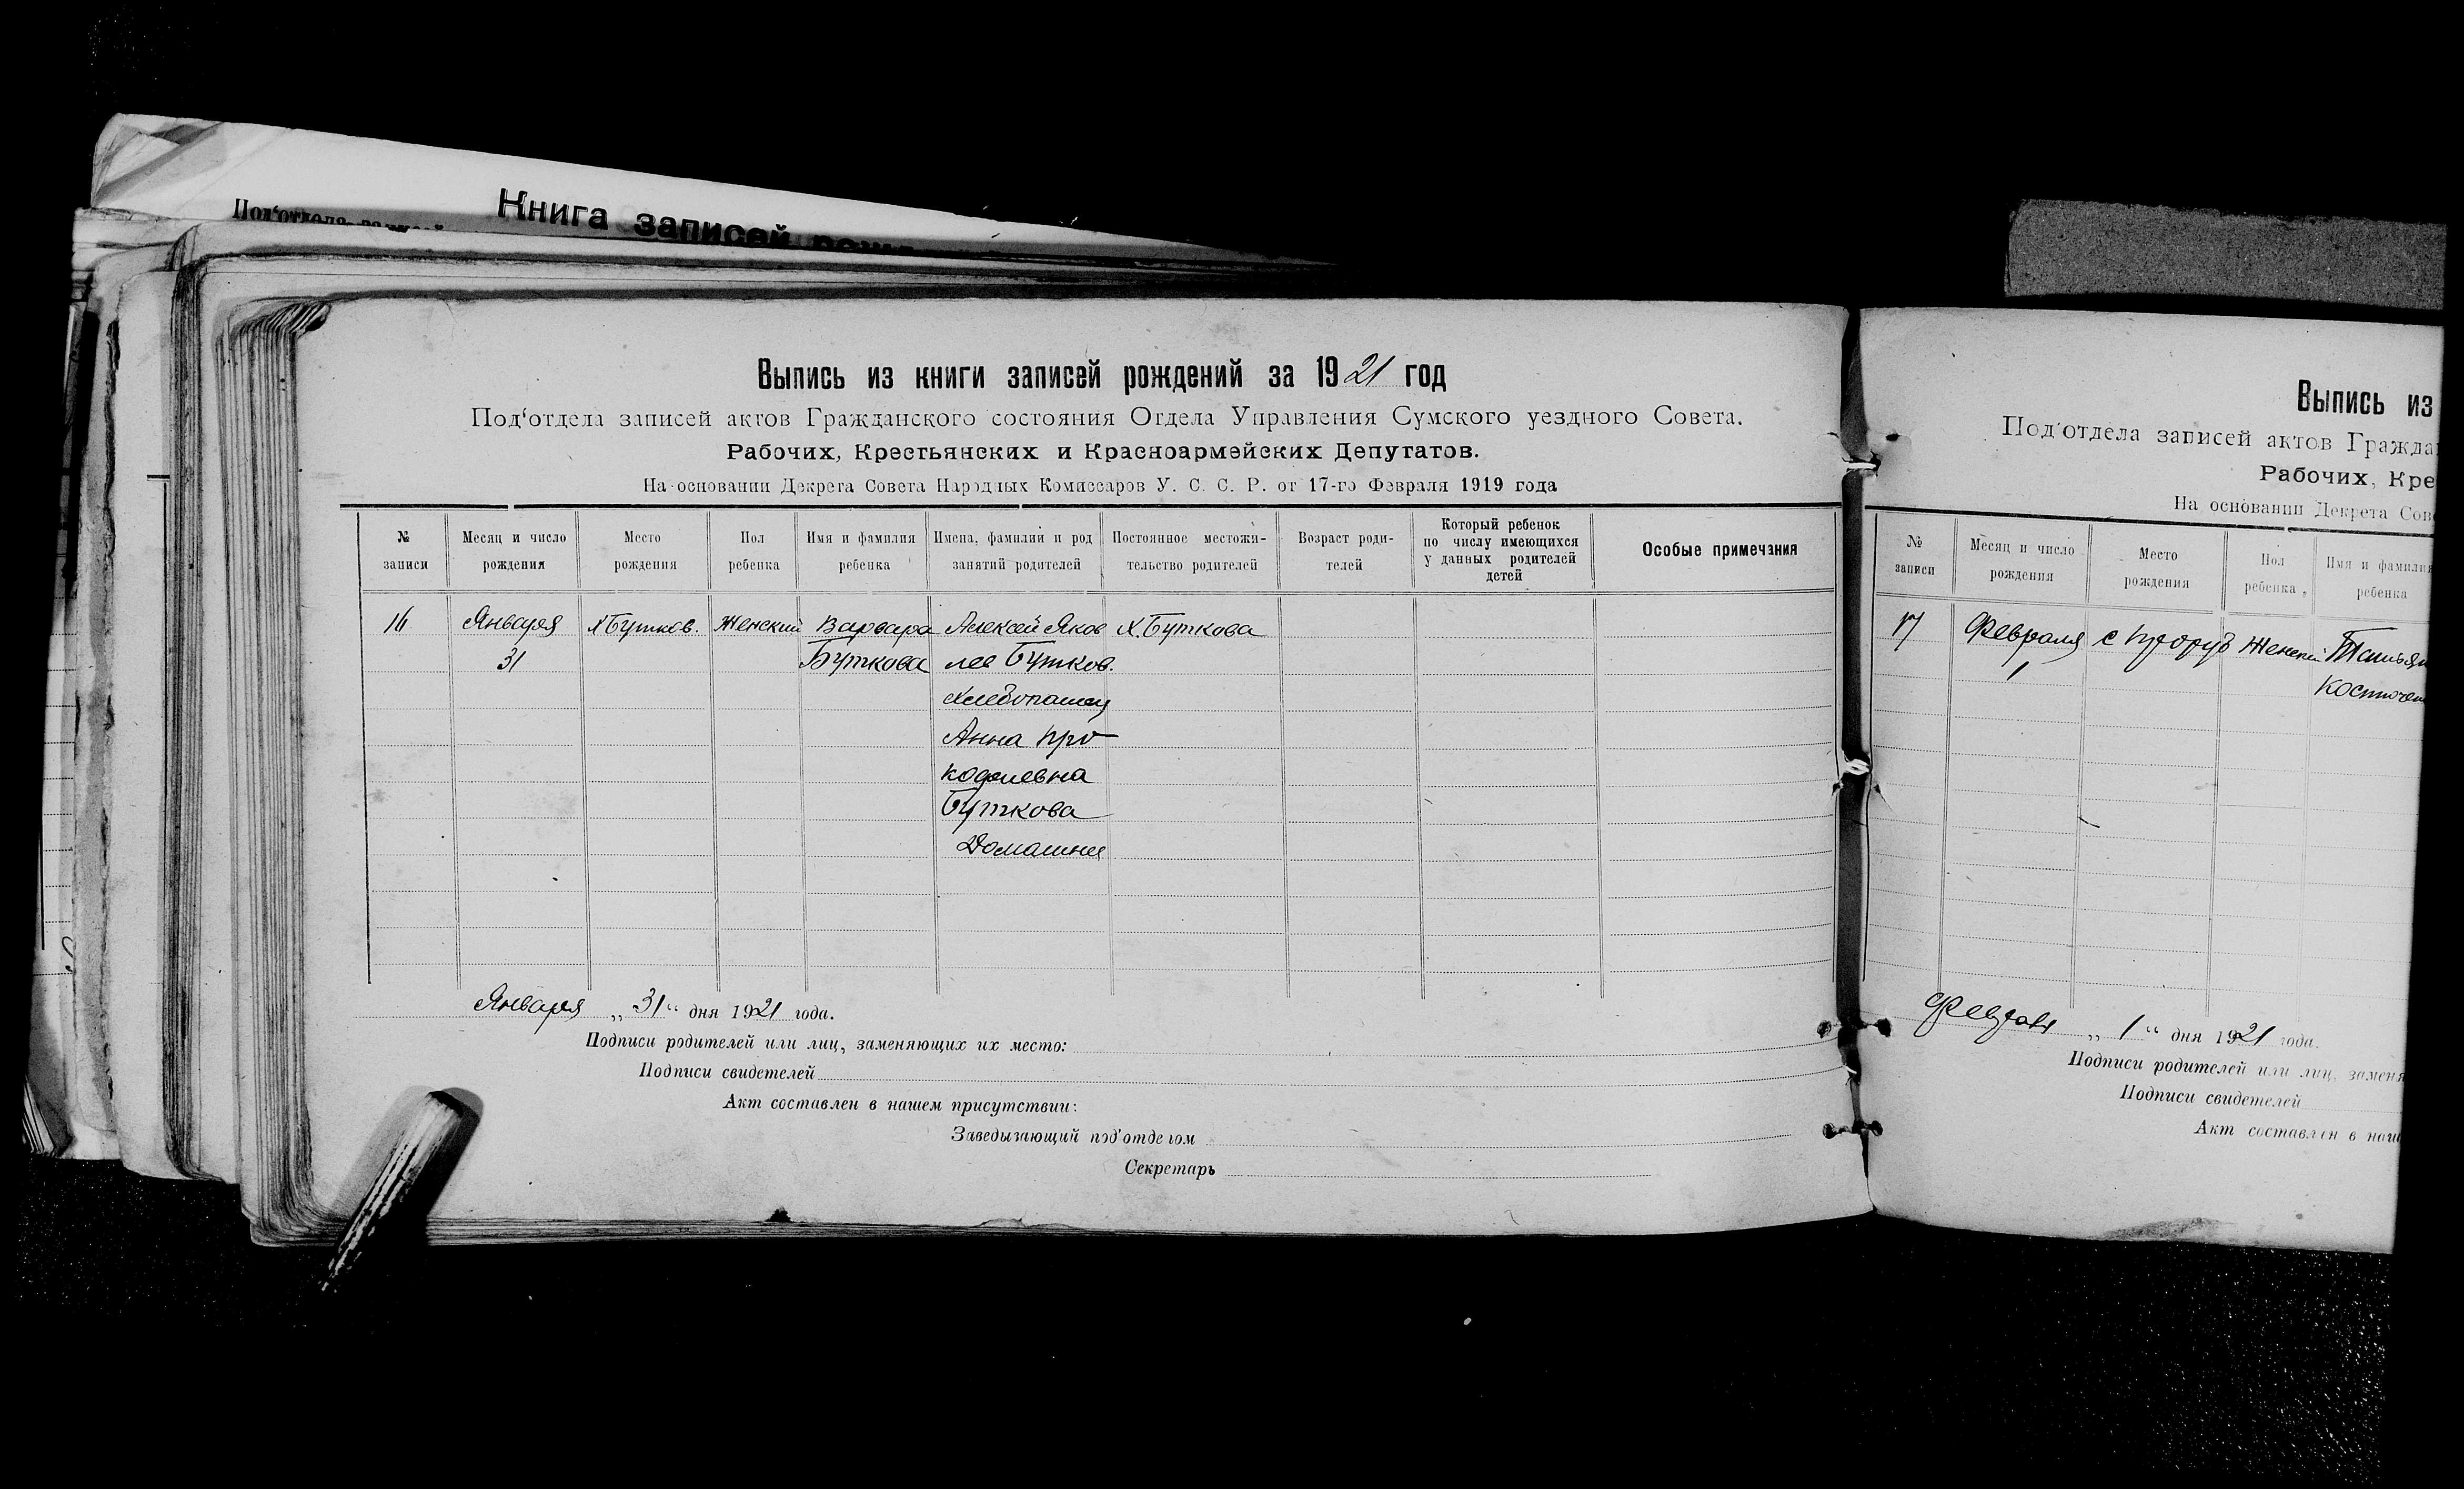 Под‘отдела
Книга записей
Выпись из книги записей рождений за 1921 год
Под‘отдела записей актов Гражданского состояния Отдела Управления Сумского уездного Совета.
Рабочих, Крестьянских и Красноармейских Депутатов.
На основании Декрета Совета Народных Комиссаров У. С. С. Р. от 17-го Февраля 1919 года
№ записи
Месяц и число рождения
Место рождения
Пол ребенка
Имя и фамилия ребенка
Имена, фамилии и род занятий родителей
Постоянное местожи-
тельство родителей
Возраст роди-
телей
Который ребенок
по числу имеющихся
у данных родителей
детей
Особые примечания
16 Января Х Бутков. Женский Варвара Алексей Яков Х. Буткова
31 Буткова лев Бутков.
Хлебопашец
Анна Про
кофиевна
Буткова
Домашня
Января „ 31 “ дня 1921 года.
Подписи родителей или лиц, заменяющих их место:
Подписи свидетелей
Акт составлен в нашем присутствии:
Заведывающий под‘отделом
Секретарь
Выпись из
Под‘отдела записей актов Гражда
Рабочих, Кре
На основании Декрета Сов
№ записи
Месяц и число рождения
Место рождения
Пол ребенка
Имя и фамилия
ребенка
17 Февраля с Проруб Женски
1
Февраля „ 1 “ дня 1921 года.
Подписи родителей или лиц, заменя
Подписи свидетелей
Акт составлен в наш